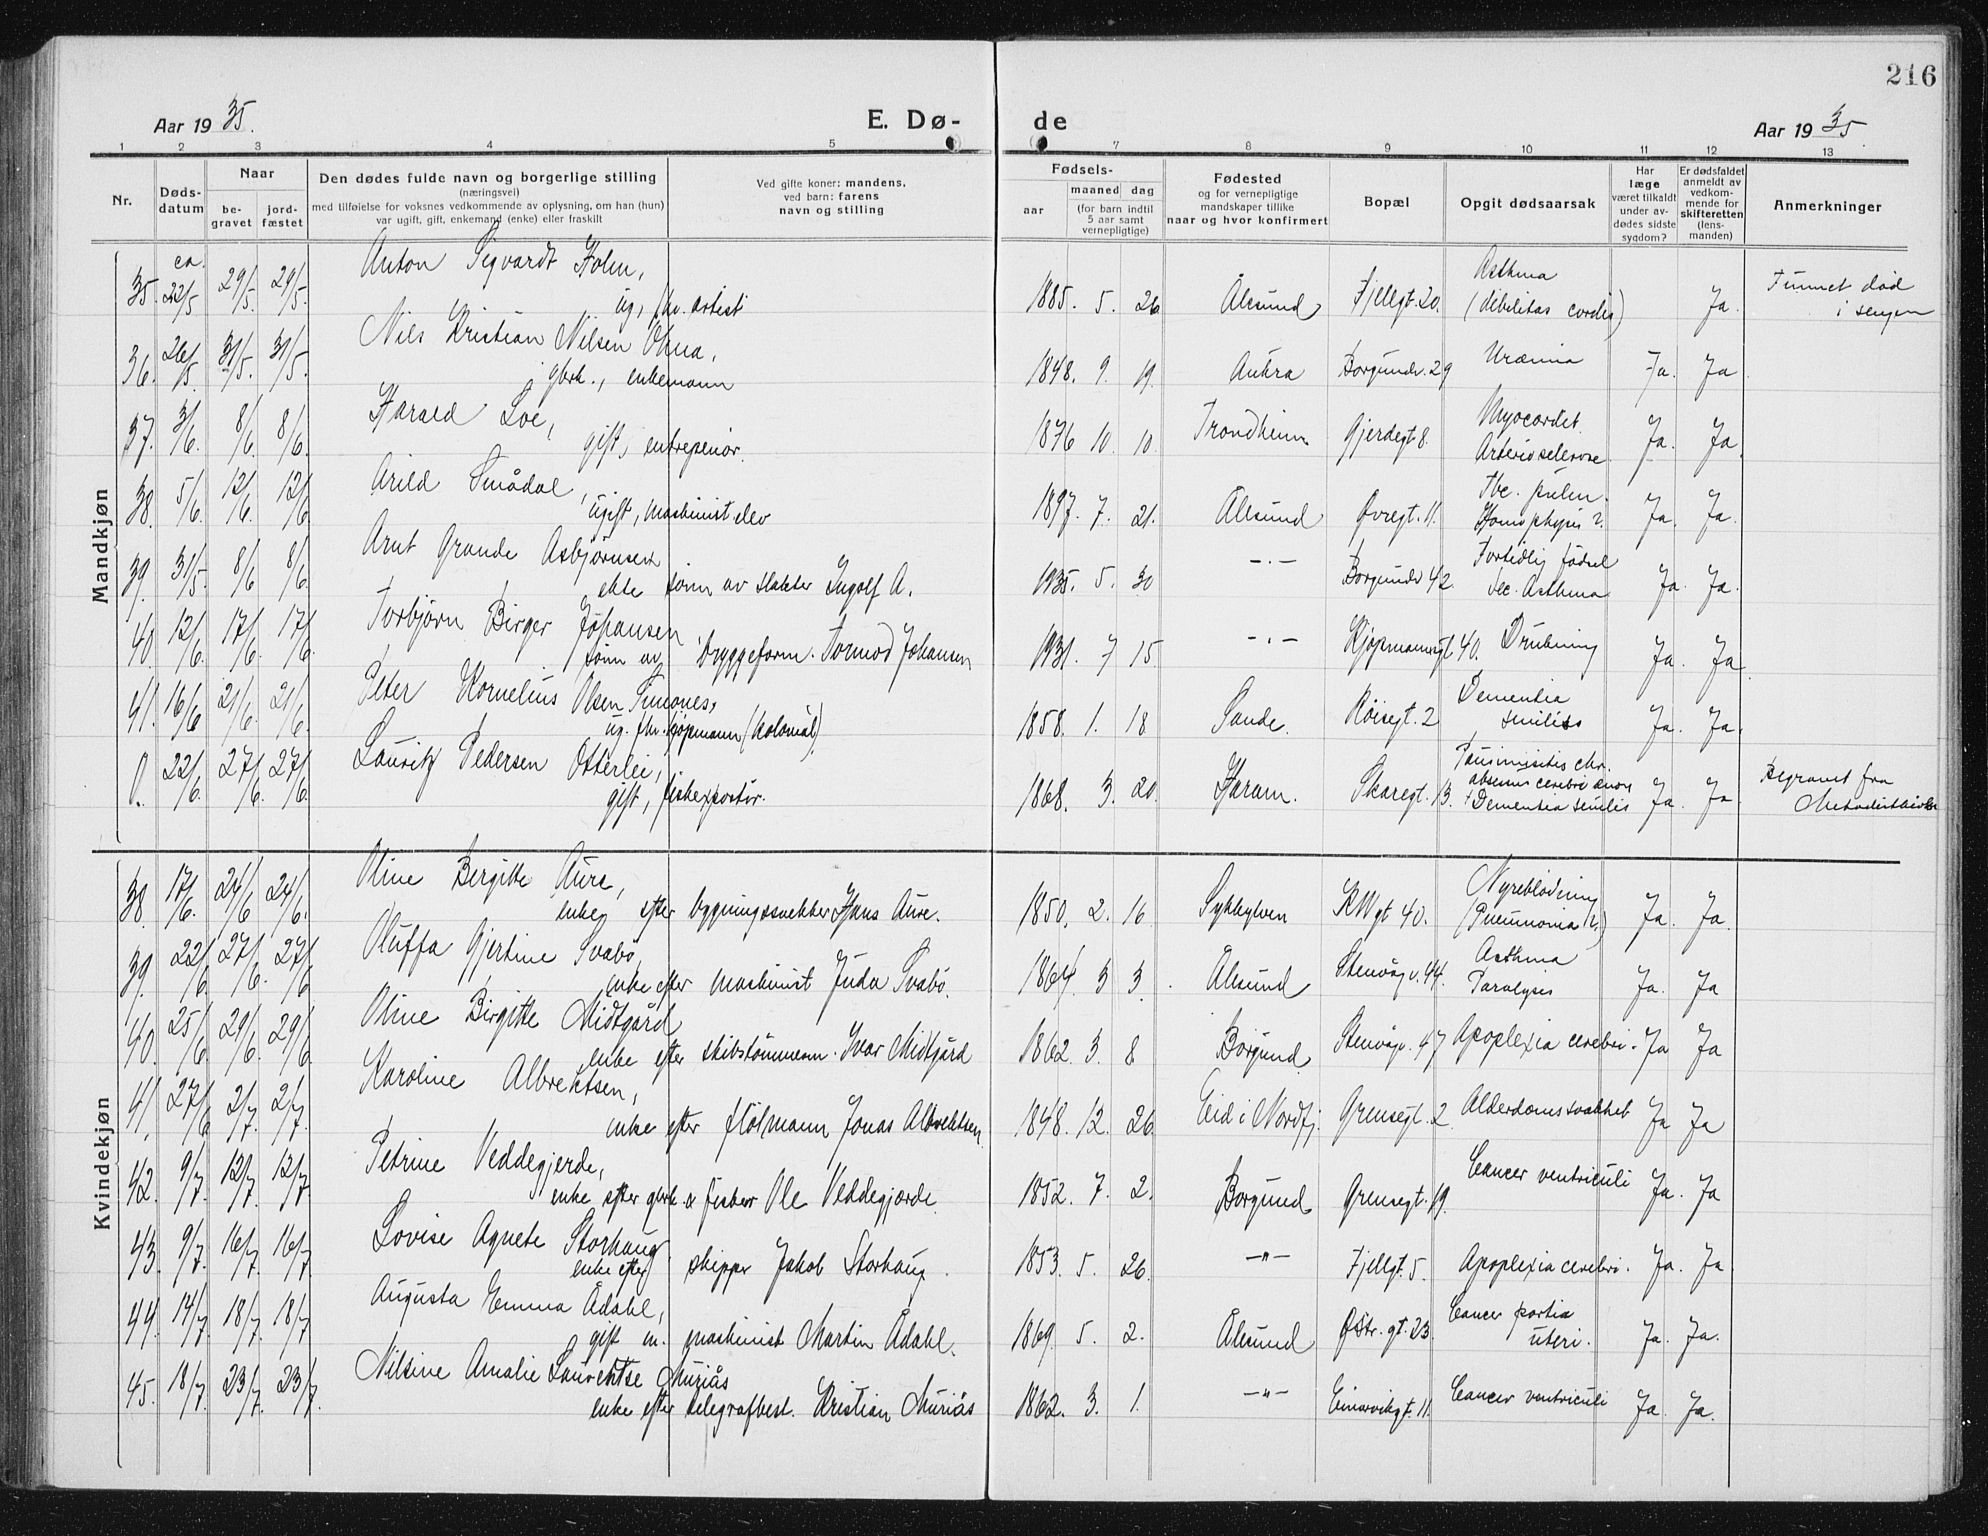 216
Aar 1935.
E. Dø-
de
Aar 1935.
1 2 3 4 5 7 8 9 10 11 12 13
Nr.
Døds-
datum
Naar
be-
gravet
jord-
fæstet
Den dødes fulde navn og borgerlige stilling
(næringsvei)
med tilføielse for voksnes vedkommende av oplysning, om han (hun)
var ugift, gift, enkemand (enke) eller fraskilt
Ved gifte koner: mandens,
ved barn: farens
navn og stilling
Fødsels-
aar
maaned dag
(for barn indtil
5 aar samt
vernepligtige)
Fødested
og for vernepligtige
mandskaper tillike
naar og hvor konfirmert
Bopæl
Opgit dødsaarsak
Har
læge
været tilkaldt
under av-
dødes sidste
sygdom?
Er dødsfaldet
anmeldt av
vedkom-
mende for
skifteretten
(lens-
manden)
Anmerkninger
Mandkjøn
35. ca. 22/5 29/5. 29/5. Anton Sigvardt Holm,
ug, fhv. artist 1885. 5. 26 Ålesund Fjellgt. 20. Asthma
(debilitas cordis) Ja. Funnet død
i sengen
36. 26/5. 31/5. 31/5. Nils Kristian Nilsen Ohna,
gbrk., enkemann 1848. 9. 19. Aukra Borgundv. 29 Uræmia Ja. Ja
37. 3/6. 8/6. 8/6. Harald Loe,
gift, entreprenør. 1876 10. 10. Trondheim Gjerdegt 8. Myocardit.
Arteriosclerose Ja. Ja
38. 5/6. 12/6. 12/6 Arild Smådal,
ugift, maskinistelev 1897. 7. 21. Ålesund Øvregt. 11. Tbc. pulm.
Hæmophysis ?. Ja. Ja.
39. 31/5. 8/6 8/6. Arnt Grande Asbjørnsen
ekte sønn av slakter Ingolf A. 1935. 5. 30 -"- Borgundv 42. Fortidlig fødsel
sec. Asthma Ja. Ja.
40. 12/6. 17/6. 17/6. Torbjørn Birger Johansen
sønn av bryggeform. Tormod Johansen 1931. 7 15 -"- Kjøpmannsgt 40. Drukning Ja. Ja.
41. 16/6 21/6. 21/6. Peter Kornelius Olsen Simones,
ug. fhv. kjøpmann (kolonial) 1858. 1. 18 Sande. Røisegt. 2 Dementia
senilis Ja. Ja.
0. 22/6. 27/6. 27/6. Lauritz Pedersen Otterlei,
gift, fiskexportør. 1868. 3. 20. Haram. Skaregt. 13. Dementia senilis Ja. Ja. Begravet fra
Metodistkirken
Kvindekjøn
38. 17/6. 24/6 24/6. Oline Bergitte Aure,
enke efter bygningssnekker Hans Aure. 1850. 2. 16 Sykkylven KWgt 40. Nyreblødning
(Pneumonia ?.) Ja. Ja.
39. 22/6. 27/6. 27/6 Oluffa Gjertine Svabø,
enke efter maskinist Juda Svabø. 1864. 3 3. Ålesund Stenvågv. 44. Asthma
Paralysis Ja. Ja
40. 25/6. 29/6. 29/6. Oline Birgitte Midtgård
enke efter skibstømmerm. Ivar Midtgård 1862. 3. 8 Borgund Stenvågv. 47 Apoplexia cerebri. Ja Ja
41. 27/6 2/7. 2/7. Karoline Albrektsen,
enke efter fløtmann Jonas Albrektsen 1848. 12. 26. Eid i Nordfj. Grensegt. 2. Alderdomssvakhet Ja Ja
42. 9/7. 12/7. 12/7. Petrine Veddegjerde,
enke efter gbrk. & fisker Ole Veddegjærde 1852. 7. 2. Borgund Grensegt. 19. Cancer ventriculi Ja. Ja
43. 9/7. 16/7. 16/7. Lovise Agnete Storhaug.
enke efter skipper Jakob Storhaug. 1853. 5. 26. -"- Fjellgt. 5. Apoplexia cerebri. Ja. Ja
44. 14/7. 18/7. 18/7 Augusta Emma Ådahl,
gift m. maskinist Martin Ådahl. 1869. 5. 2. Ålesund Østr. gt. 23. Cancer portio
uteri. Ja. Ja.
45. 18/7. 23/7. 23/7. Nilsine Amalie Laurentse Muriås
enke efter telegrafbest. Kristian Muriås 1862. 3. 1. -"- Einarvikgt. 11. Cancer ventriculi Ja Ja.